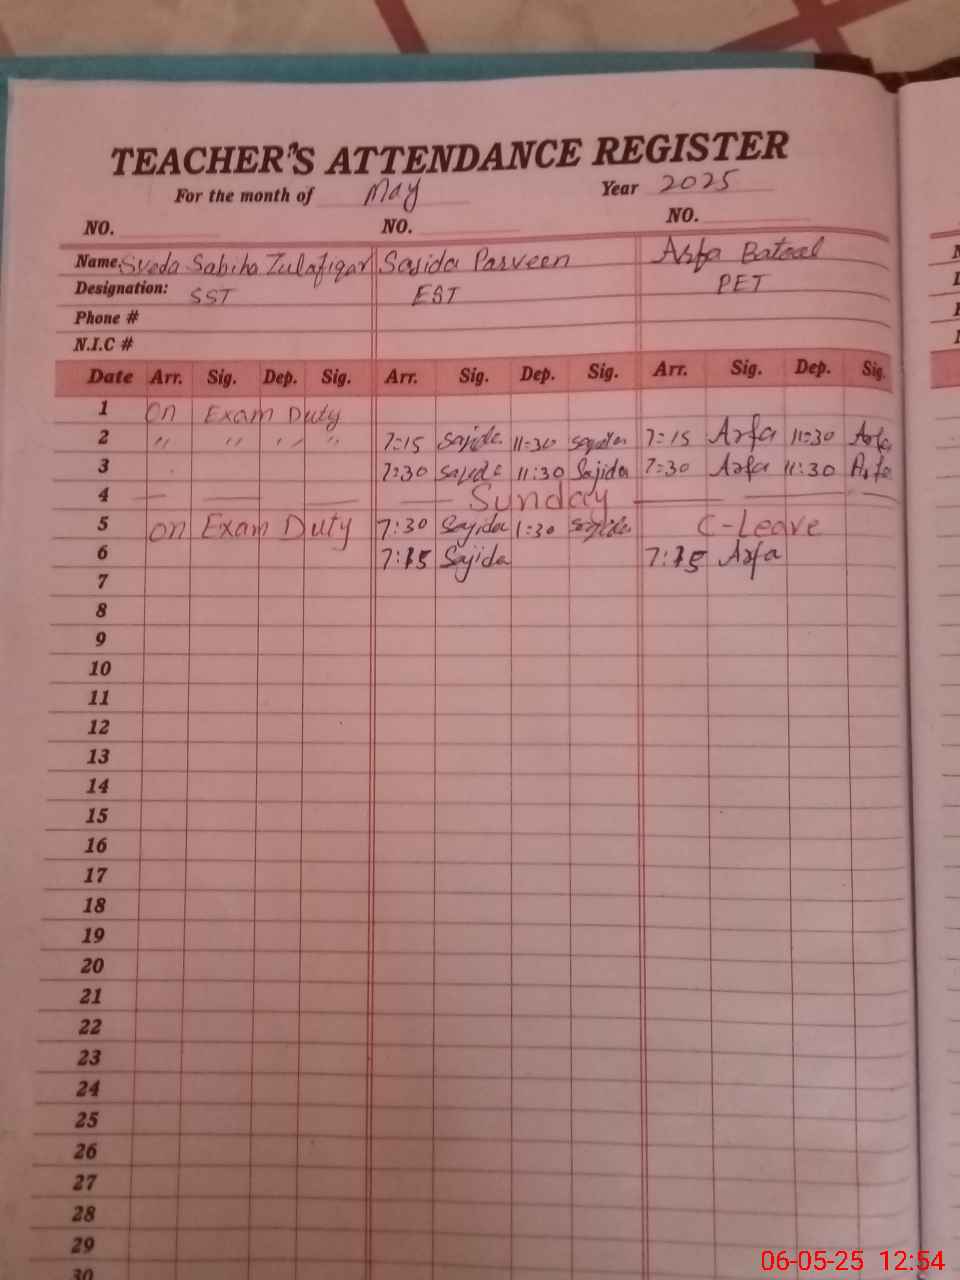 TEACHER'S ATTENDANCE REGISTER
For the month of May Year 2025
NO. NO. NO.
Name: Syeda Sabiha Zulafiqar Sajida Parveen Arfa Batool
Designation: SST EST PET
Phone #
N.I.C #
Date Arr. Sig. Dep. Sig. Arr. Sig. Dep. Sig. Arr. Sig. Dep. Sig.
1 On Exam Duty
2 〃 〃 〃 〃 7:15 Sajida 11:30 Sajida 7:15 Arfa 11:30 Arfa
3 7:30 Sajida 11:30 Sajida 7:30 Arfa 11:30 Arfa
4 — — — — Sunday — — —
5 On Exam Duty 7:30 Sajida 1:30 Sajida C-Leave
6 7:15 Sajida 7:15 Arfa
7
8
9
10
11
12
13
14
15
16
17
18
19
20
21
22
23
24
25
26
27
28
29
30
06-05-25 12:54